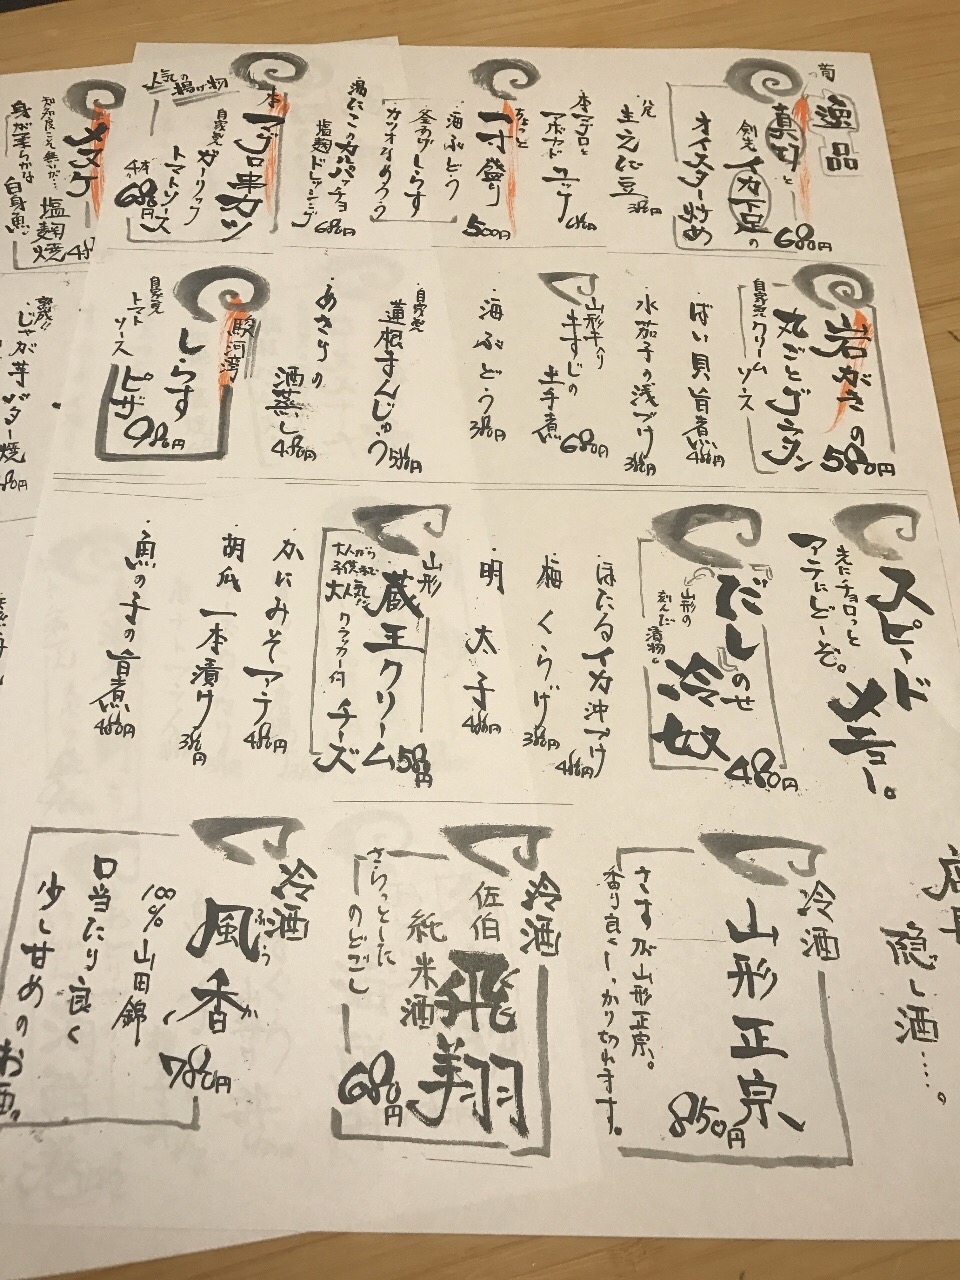 逸品
真つぶと
剣先イカ下足の
オイスター炒め
680円
生えだ豆
380円
本マグロと
アボカドユッケ
680円
ちょこっと
一寸盛り
500円
海ぶどう
釜あげしらす
カツオなめろう
湯だこのカルパッチョ
塩麹ドレッシング
680円
人気の揚げ物
本マグロ串カツ
自家製ガーリック
トマトソース
4本
680円
メヌケ
知名度こそ無いが…
身が柔らかな
白身魚
塩麹焼
岩がきの
丸ごとグラタン
自家製クリームソース
580円
ばい貝旨煮
480円
水茄子の浅づけ
380円
山形牛入り
牛すじの
土手煮
680円
海ぶどう
380円
自家製
蓮根まんじゅう
580円
あさりの
酒蒸し
480円
駿河湾
しらす
ピザ
自家製
トマト
ソース
980円
じゃが芋バター焼
スピードメニュー。
先にチョロっと
アテにどーぞ。
だしのせ
冷奴
山形の
刻んだ
漬物
480円
ほたるイカ沖づけ
480円
梅くらげ
380円
明太子
480円
山形
蔵王クリーム
チーズ
大人から
子供まで
大人気だ
クラッカー付
580円
かにみそアテ
480円
胡瓜一本漬け
380円
魚の子の旨煮
480円
隠し酒……。
冷酒
山形正宗
さすが山形正宗。
香り良くしっかり切れます。
850円
冷酒
佐伯
飛翔
純米酒
さらっとした
のどごし
680円
冷酒
風香
ふうか
100%山田錦
口当たり良く
少し甘めのお酒。
780円